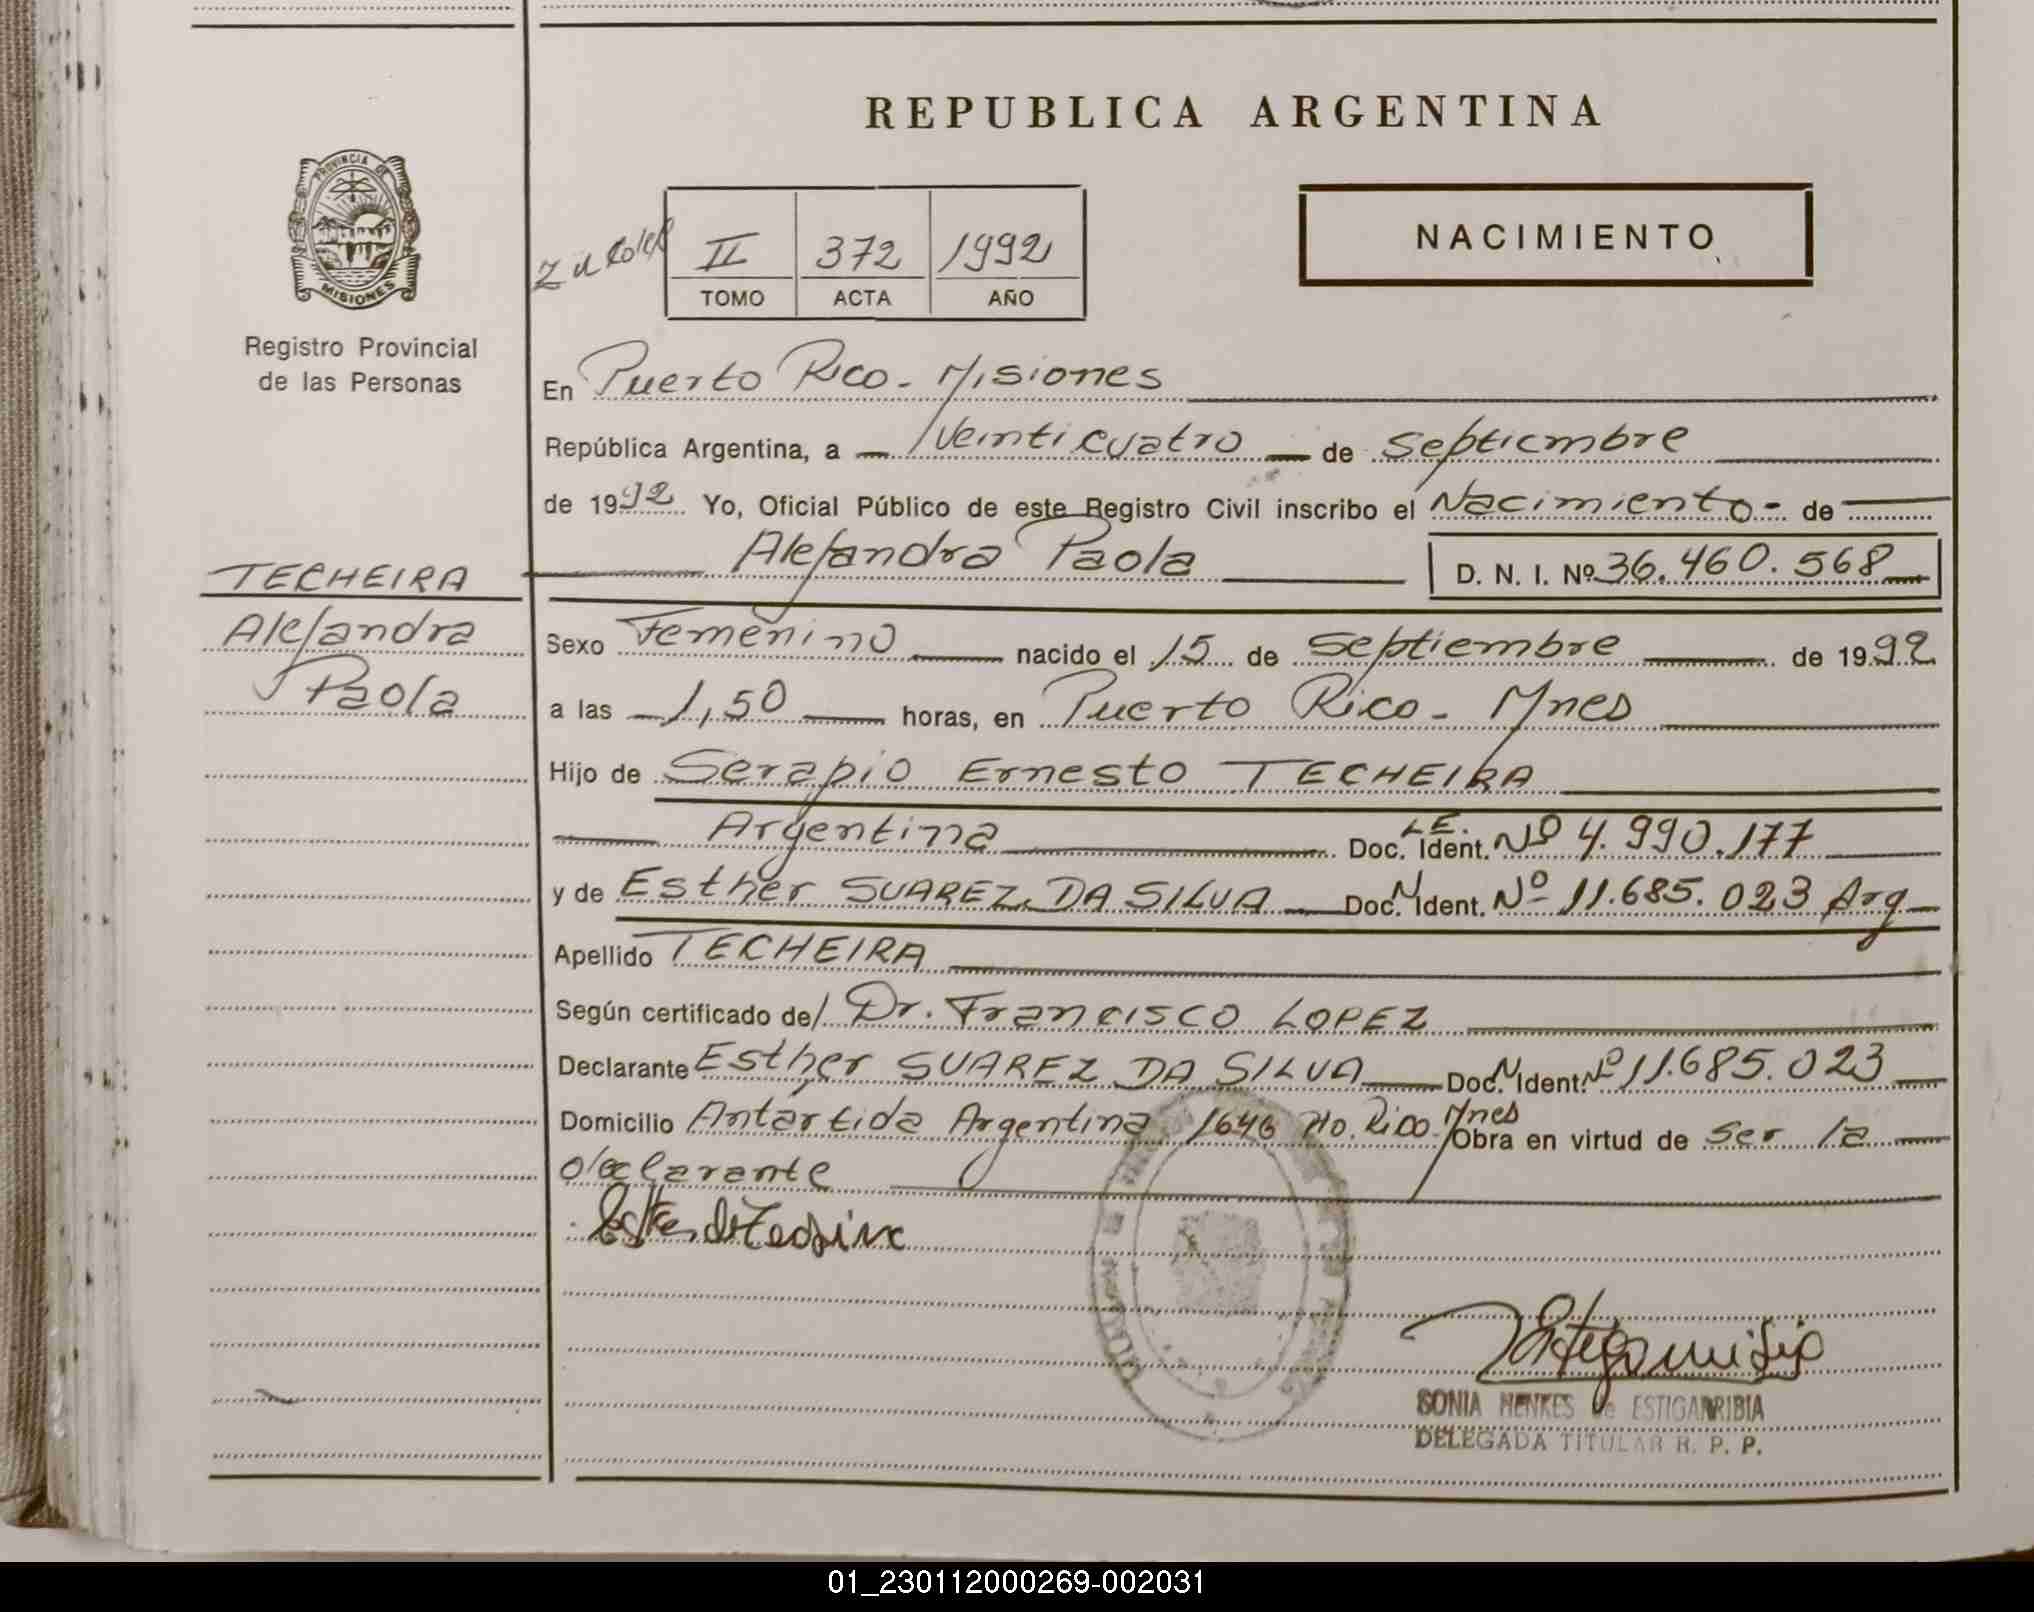 REPUBLICA ARGENTINA
PROVINCIA DE
MISIONES
Registro Provincial
de las Personas
II 372 1992
TOMO ACTA AÑO
NACIMIENTO
En Puerto Rico - Misiones
República Argentina, a Veinticuatro de Septiembre
de 1992 Yo, Oficial Público de este Registro Civil inscribo el Nacimiento - de
Alejandra Paola D. N. I. Nº 36.460.568
TECHEIRA
Alejandra
Paola
Sexo Femenino nacido el 15 de Septiembre de 1992
a las 1,50 horas, en Puerto Rico - Mnes
Hijo de Serapio Ernesto TECHEIRA
Argentina Doc. Ident. L.E. Nº 4.990.177
y de Esther SUAREZ DA SILVA Doc. Ident. Nº 11.685.023 Arg
Apellido TECHEIRA
Según certificado de Dr. Francisco LOPEZ
Declarante Esther SUAREZ DA SILVA Doc. Ident. Nº 11.685.023
Domicilio Antártida Argentina 1646 Pto. Rico - Mnes Obra en virtud de ser la
declarante
SONIA MENKES de ESTIGARRIBIA
DELEGADA TITULAR R. P. P.
01_230112000269-002031